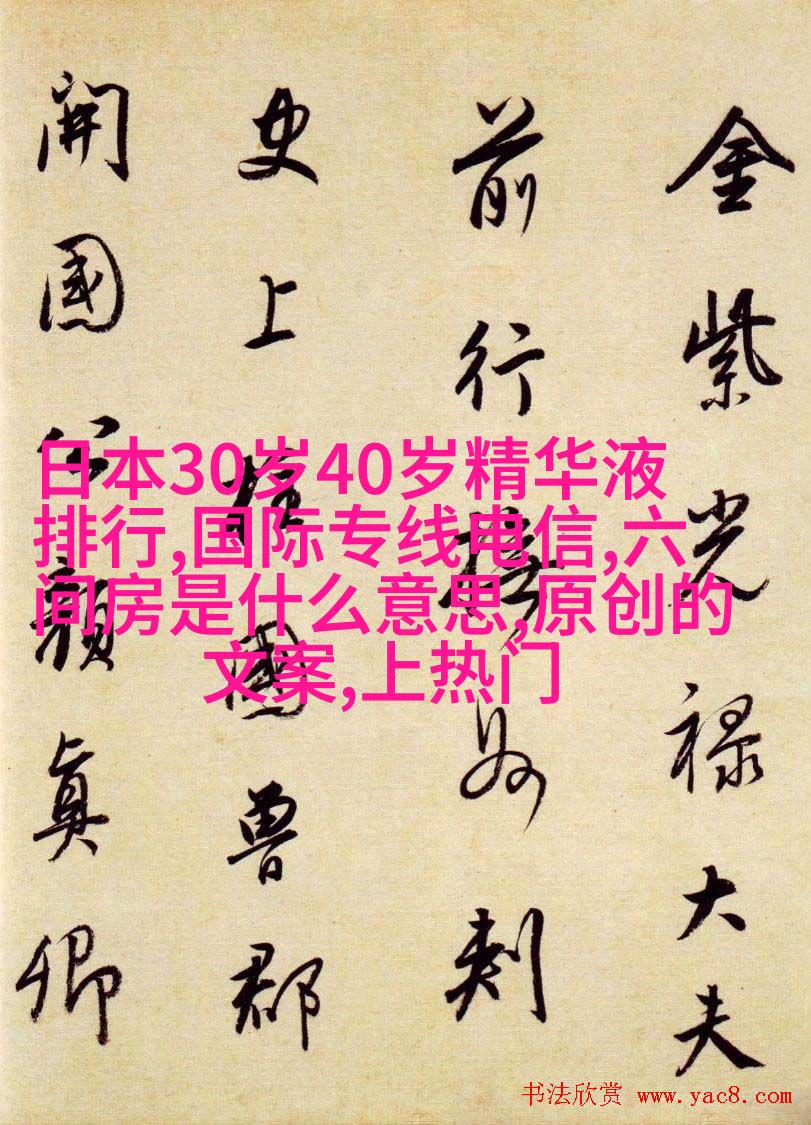 金紫光禄大夫
前行撫州刺
史上柱國魯郡
開國公顔真卿
日本30岁40岁精华液
排行,国际专线电信,六
间房是什么意思,原创的
文案,上热门
书法欣赏 www.yac8.com